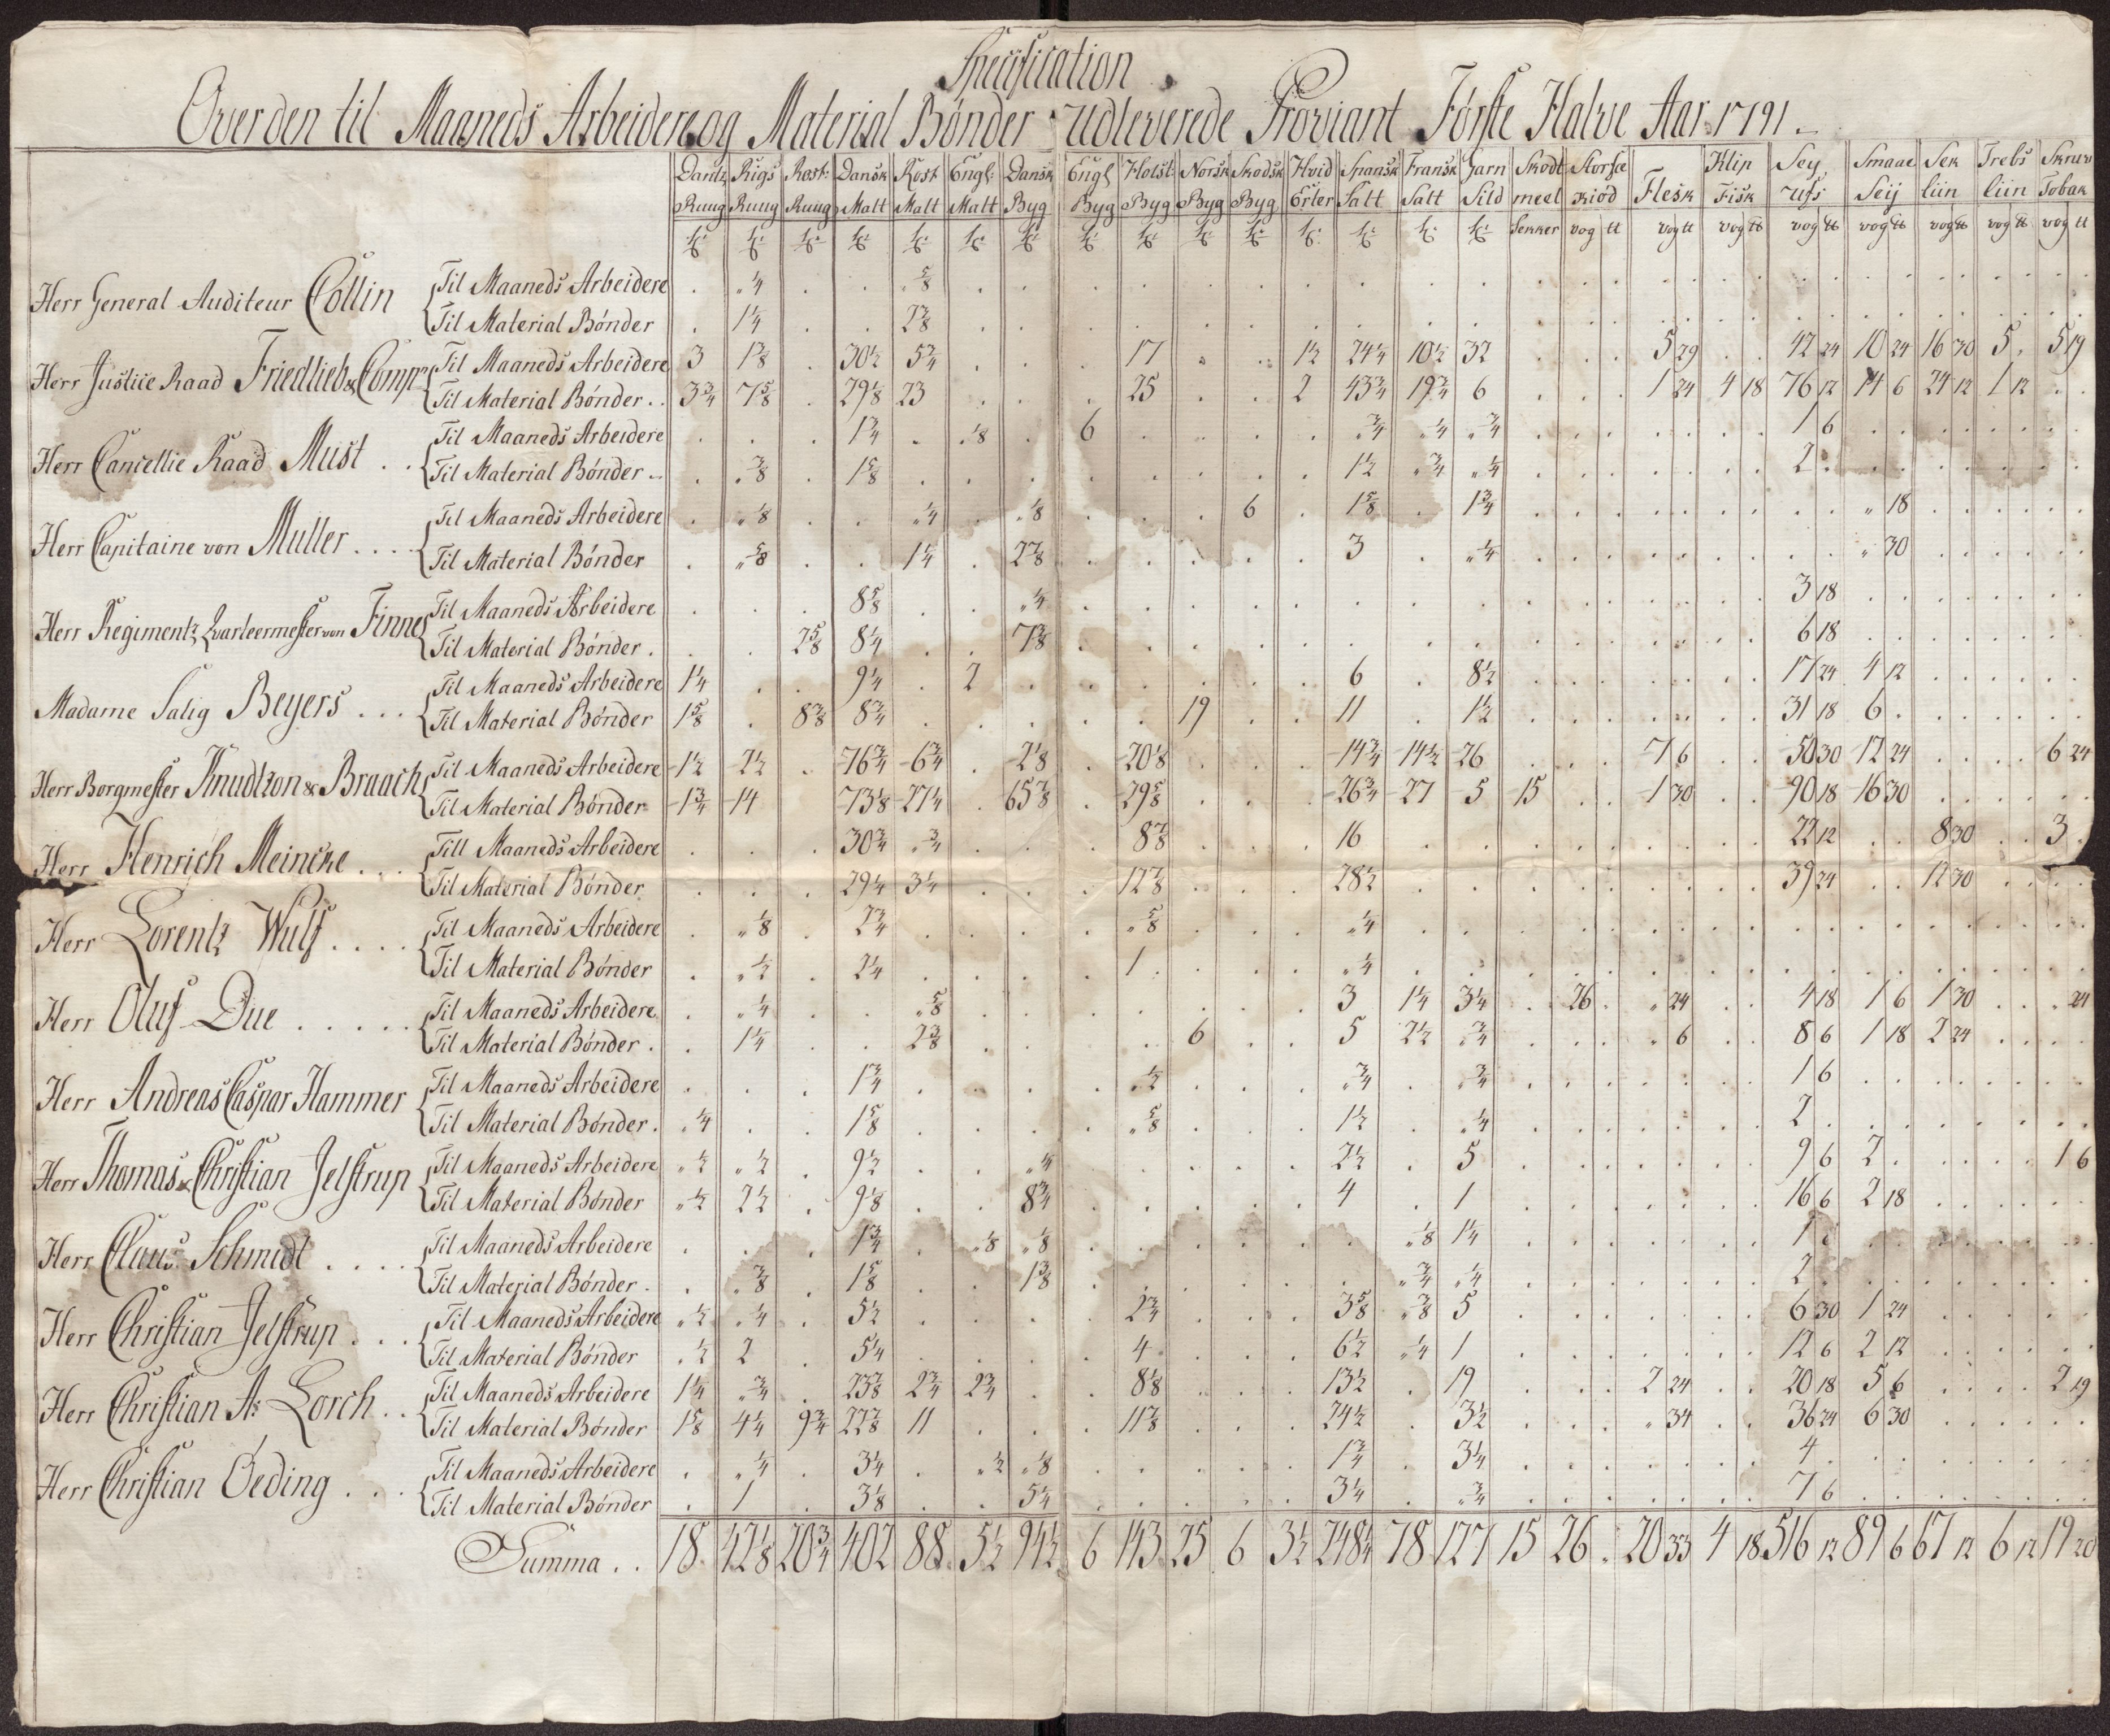 Specification
Over den til Maaneds Arbeidere og Material Bønder udleverede Proviant Første Halve Aar 1791
Dantz Rigs Rost: Dansk Rost Engl: Dansk Engl Holst: Norsk Skodsk Hvid Spansk Fransk Garn Skodt Storfse Flesk Klip Sey Smaae Sek Trebs Skruv
Ruug Ruug Ruug Malt Malt Malt Byg Byg Byg Byg Byg Erter Salt Salt Sild meel kiød Fisk ufs Seij liin liin Tobak
Sekker vog tt vog tt vog tt vog tt vog tt vog tt vog tt vog tt
Herr General Auditeur Collin Til Maaneds Arbeidere . „ 1/4 . . 5/8
Til Material Bønder . 1 1/4 . . 2 3/8
Herr Justice Raad Friedlieb & Comp Til Maaneds Arbeidere 3 1 3/8 . 30 1/2 5 3/4 17 1 1/2 24 1/4 10 1/2 32 5 29 42 24 10 24 16 30 5 . 5 19
Til Material Bønder . . 3 3/4 7 5/8 . 29 1/8 23 25 2 43 3/4 19 3/4 6 1 24 4 18 76 12 14 6 24 12 1 12
Herr Cancellie Raad Must . . Til Maaneds Arbeidere 1 3/4 . 1/8 6 „ 3/4 „ 1/4 „ 3/4 1 6
Til Material Bønder . . „ 3/8 . 1 5/8 1 1/2 „ 3/4 „ 1/4 2
Herr Capitaine von Muller . . . . Til Maaneds Arbeidere „ 1/8 „ 1/4 „ 1/8 6 1 5/8 1 3/4 „ 18
Til Material Bønder „ 5/8 1 1/4 2 7/8 3 „ 1/4 „ 30
Herr Regimentz Qvarteermester von Finne Til Maaneds Arbeidere 8 5/8 „ 1/4 3 18
Til Material Bønder . 2 5/8 8 1/4 7 3/8 6 18
Madame Salig Beyers . . . Til Maaneds Arbeidere 1 1/4 9 1/4 2 6 8 1/2 17 24 4 12
Til Material Bønder 1 5/8 8 3/8 8 3/4 19 11 1 1/2 31 18 6
Herr Borgmester Knudtzon & Braach Til Maaneds Arbeidere 1 1/2 2 1/2 76 3/4 6 3/4 2 1/8 20 1/8 14 3/4 14 1/2 26 7 6 50 30 12 24 6 24
Til Material Bønder 1 3/4 14 73 1/8 27 1/4 65 7/8 29 5/8 26 3/4 27 5 15 1 30 90 18 16 30
Herr Henrich Meincke . . . Till Maaneds Arbeidere 30 3/4 „ 3/4 8 7/8 16 22 12 8 30 3
Til Material Bønder 29 1/4 3 1/4 12 7/8 28 1/2 39 24 12 30
Herr Lorentz Wulf . . . . Til Maaneds Arbeidere „ 1/8 2 3/4 „ 5/8 „ 1/4
Til Material Bønder „ 1/2 2 1/4 1 „ 1/4
Herr Oluf Due . . . . . Til Maaneds Arbeidere „ 1/4 „ 5/8 3 1 1/4 3 1/4 26 „ 24 4 18 1 6 1 30 . 24
Til Material Bønder . 1 1/4 2 3/8 6 5 2 1/2 „ 3/4 „ 6 8 6 1 18 2 24
Herr Andreas Caspar Hammer Til Maaneds Arbeidere 1 3/4 „ 1/2 „ 3/4 „ 3/4 1 6
Til Material Bønder . „ 1/4 1 5/8 „ 5/8 1 1/2 „ 1/4 2
Herr Thomas & Christian Jelstrup Til Maaneds Arbeidere „ 1/2 „ 1/2 9 1/2 „ 1/4 2 1/2 5 9 6 2 1 6
Til Material Bønder „ 1/2 2 1/2 9 1/8 8 3/4 4 1 16 6 2 18
Herr Claus Schmidt . . . . Til Maaneds Arbeidere 1 3/4 „ 1/8 „ 1/8 „ 1/8 1 1/4 1 6
Til Material Bønder . „ 3/8 1 5/8 1 3/8 „ 3/4 „ 1/4 2
Herr Christian Jelstrup . . . Til Maaneds Arbeidere „ 1/2 „ 1/4 5 1/2 2 3/4 3 5/8 „ 3/8 5 6 30 1 24
Til Material Bønder „ 1/2 2 5 1/4 4 6 1/2 „ 1/4 1 12 6 2 12
Herr Christian A: Lorch . . Til Maaneds Arbeidere 1 1/4 „ 3/4 23 7/8 2 3/4 2 3/4 8 1/8 13 1/2 19 2 24 20 18 5 6 2 19
Til Material Bønder 1 5/8 4 1/4 9 3/4 22 7/8 11 11 7/8 24 1/2 3 1/2 „ 34 36 24 6 30
Herr Christian Oeding . . . Til Maaneds Arbeidere „ 1/4 3 1/4 „ 1/2 „ 1/8 1 3/4 3 1/4 4
Til Material Bønder . 1 3 1/8 5 1/4 3 1/4 „ 3/4 7 6
Summa . . 18 42 1/8 20 3/4 402 88 5 1/2 94 1/2 6 143 25 6 3 1/2 248 1/4 78 127 15 26 . 20 33 4 18 516 12 89 6 67 12 6 12 19 20